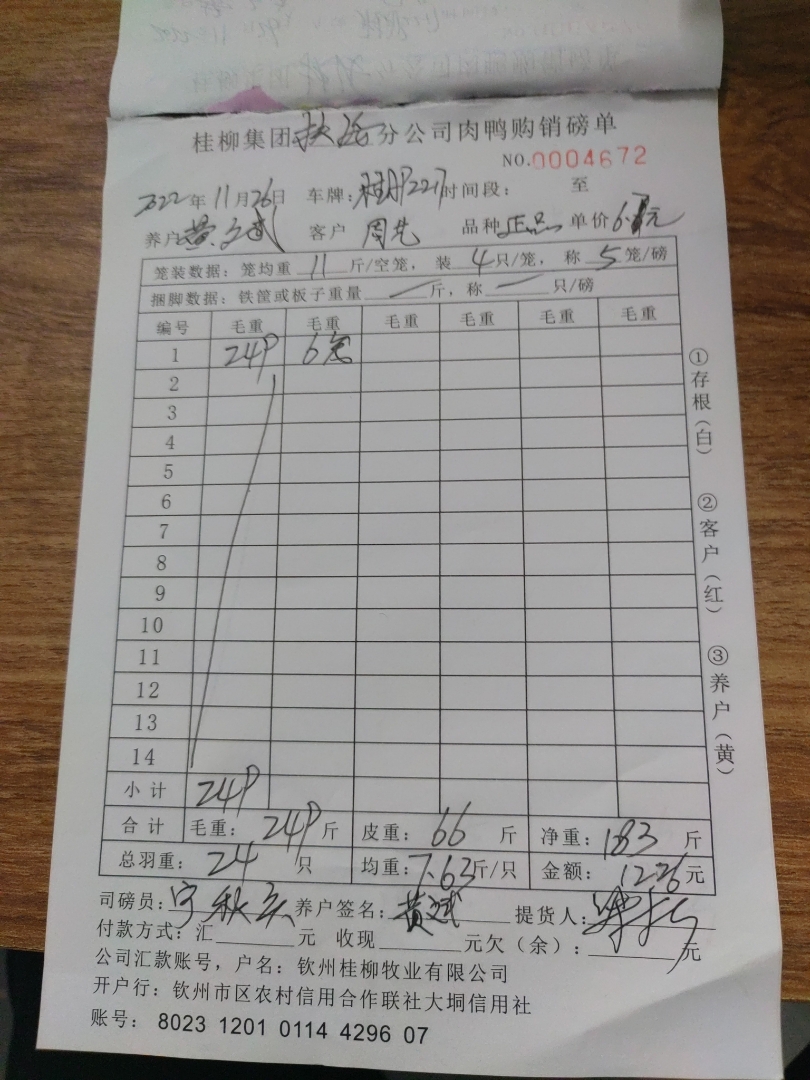 桂柳集团 分公司肉鸭购销磅单
NO.0004672
2022年11月26日 车牌: 时间段: 至
养户黄 斌 客户 周先 品种正品 单价6.7元
笼装数据:笼均重 11 斤/空笼,装 4只/笼,称 5笼/磅
捆脚数据:铁筐或板子重量 — 斤,称 — 只/磅
编号 毛重 毛重 毛重 毛重 毛重 毛重
1 249 6笼
2
3
4
5
6
7
8
9
10
11
12
13
14
小计 249
合计 毛重: 249斤 皮重: 66 斤 净重: 183 斤
总羽重: 24 只 均重: 7.63斤/只 金额: 1226元
司磅员: 养户签名: 黄 斌 提货人:
付款方式:汇 元 收现 元欠(余): 元
公司汇款账号,户名:钦州桂柳牧业有限公司
开户行:钦州市区农村信用合作联社大垌信用社
账号: 8023 1201 0114 4296 07
①存根(白)
②客户(红)
③养户(黄)